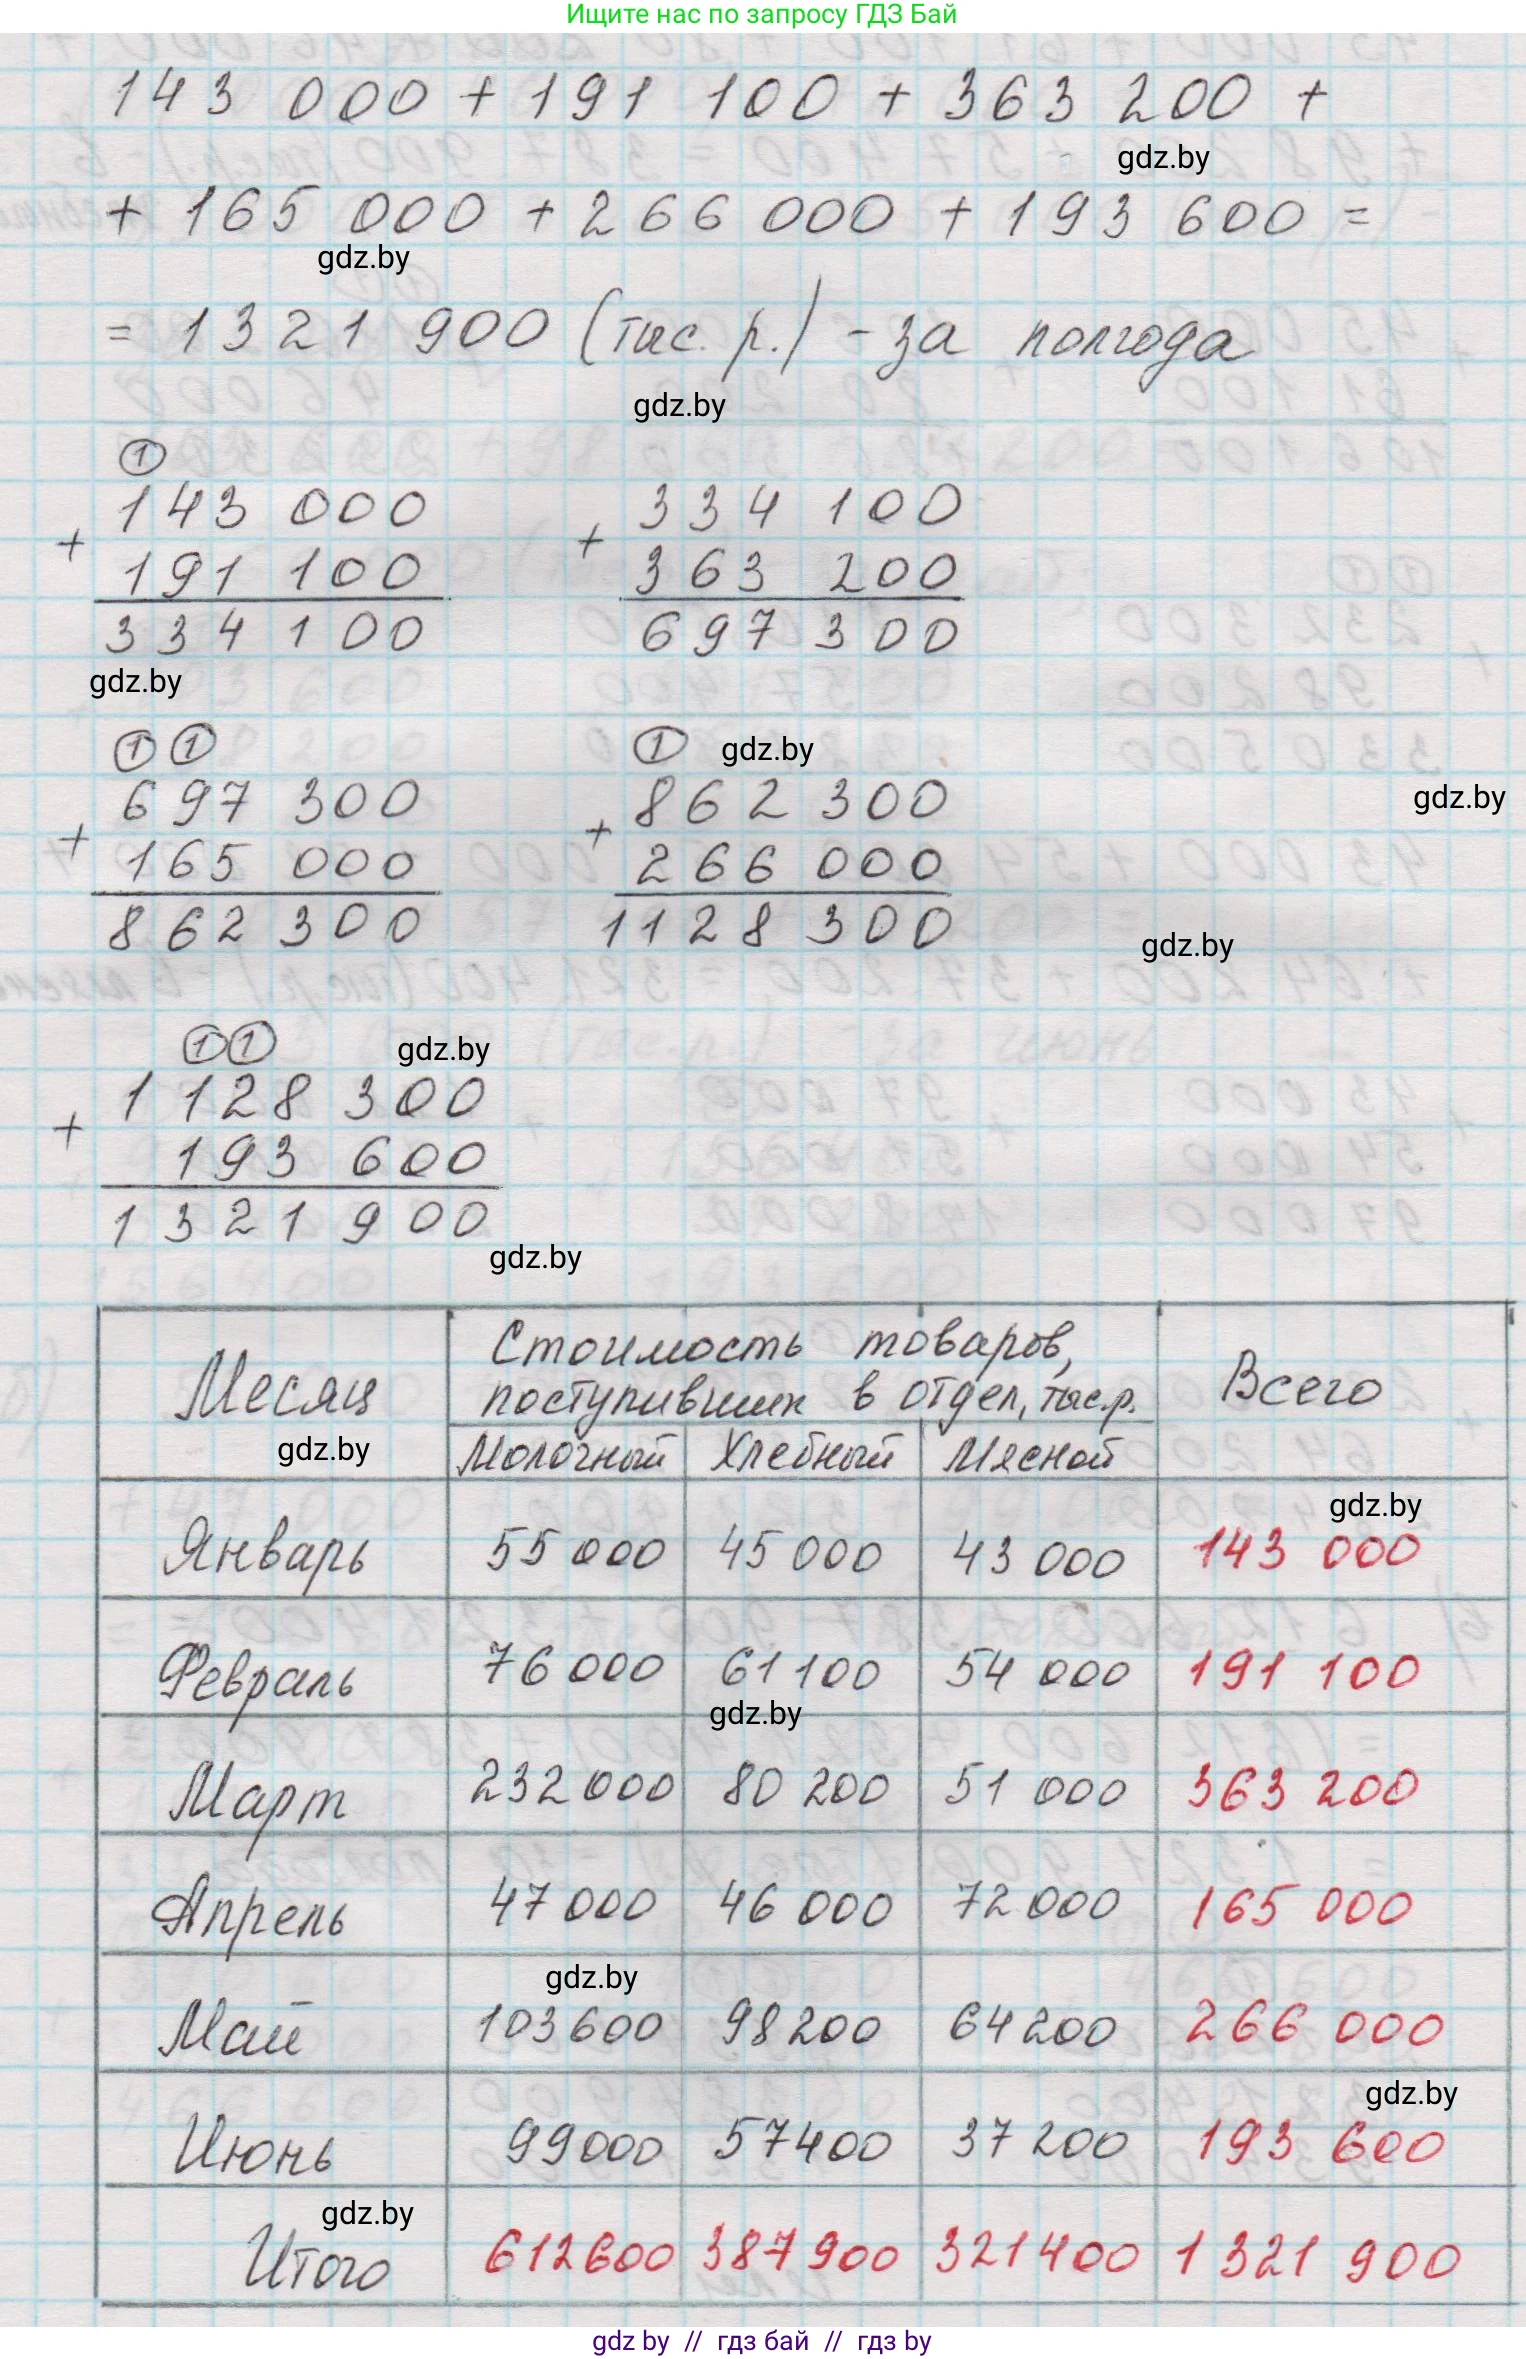 Ищите нас по запросу ГДЗ Бай
143 000 + 191 100 + 363 200 +
gdz.by
+ 165 000 + 266 000 + 193 600 =
gdz.by
= 1321 900 (тыс. р.) - за полгода
gdz.by
1
143 000
+
191 100
334 100
334 100
+
363 200
697 300
gdz.by
1 1
697 300
+
165 000
862 300
1 gdz.by
862 300
+
266 000
1128 300
gdz.by
gdz.by
1 1
gdz.by
1 128 300
+
193 600
1 321 900
gdz.by
Месяц
Стоимость товаров,
поступивших в отдел, тыс.р.
Всего
gdz.by
Молочный Хлебный Мясной
gdz.by
Январь 55 000 45 000 43 000 143 000
Февраль 76 000 61 100 54 000 191 100
gdz.by
Март 232 000 80 200 51 000 363 200
Апрель 47 000 46 000 72 000 165 000
gdz.by
Май 103 600 98 200 64 200 266 000
gdz.by
Июнь 99 000 57 400 37 200 193 600
gdz.by
Итого 612 600 387 900 321 400 1 321 900
gdz by // гдз бай // гдз by